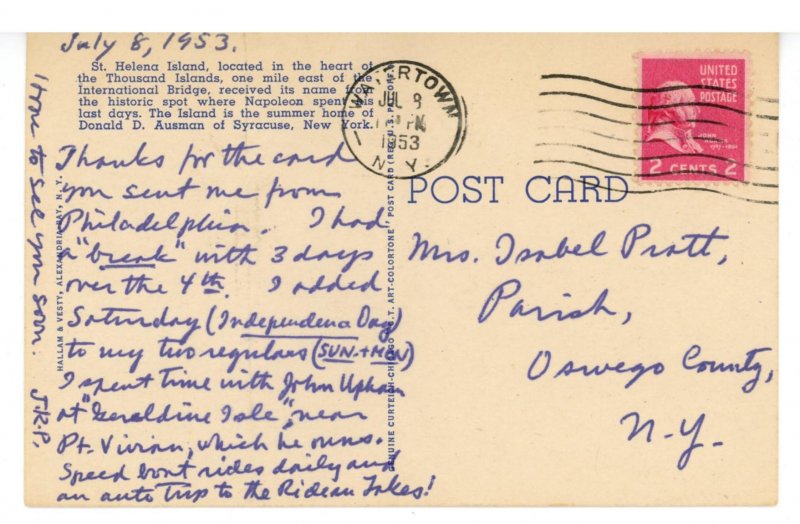 July 8, 1953.
St. Helena Island, located in the heart of
the Thousand Islands, one mile east of the
International Bridge, received its name from
the historic spot where Napoleon spent his
last days. The Island is the summer home of
Donald D. Ausman of Syracuse, New York.
Thanks for the card
you sent me from
Philadelphia. I had
a "break" with 3 days
over the 4th. I added
Saturday (Independence Day)
to my two regulars (SUN. + MON)
I spent time with John Upham
at "Geraldine Isle", near
Pt. Vivian, which he owns.
Speed boat rides daily and
an auto trip to the Rideau Lakes!
Hope to see you soon. J.R.P.
HALLAM & VESTY, ALEXANDRIA BAY, N. Y.
GENUINE CURTEICH-CHICAGO "C. T. ART-COLORTONE" POST CARD (REG. U.S. PAT. OFF.)
WATERTOWN
JUL 8
PM
1953
N Y
UNITED
STATES
POSTAGE
JOHN ADAMS
2 CENTS 2
POST CARD
Mrs. Isabel Pratt,
Parish,
Oswego County,
N.Y.